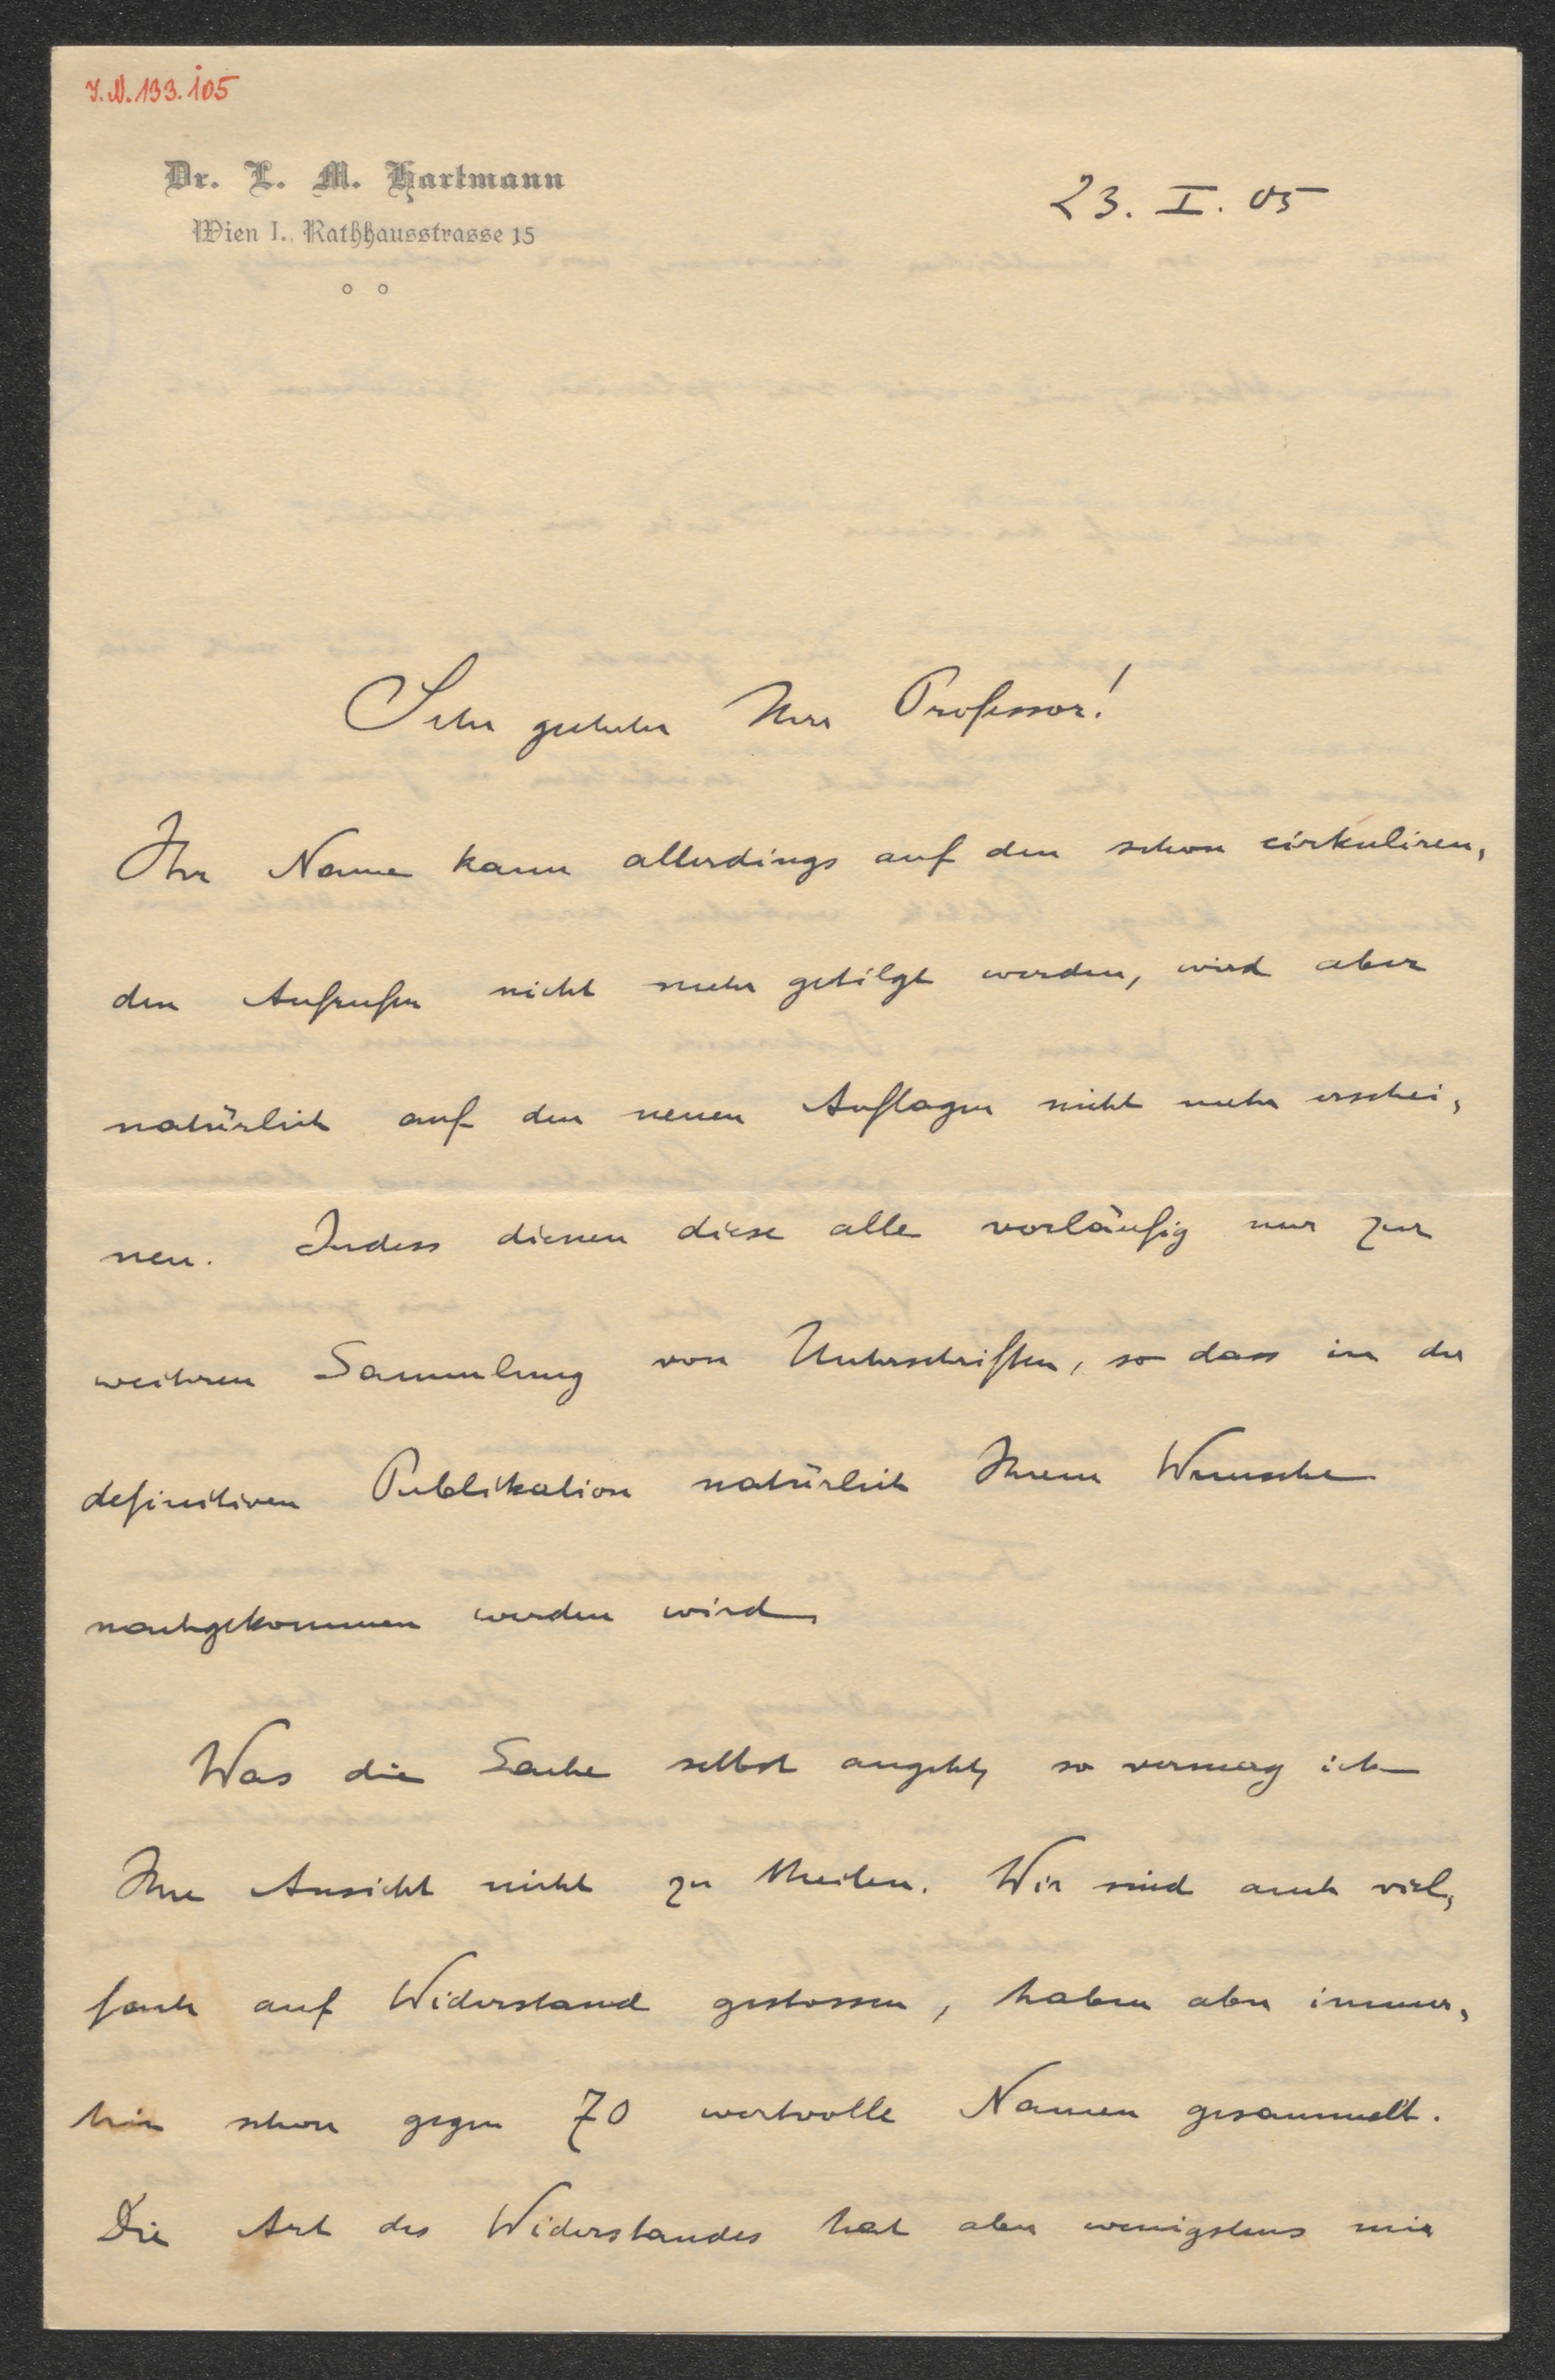 J.N. 133.105
Dr. L. M. Hartmann
Wien I., Rathhausstrasse 15
23. I. 05
Sehr geehrter Herr Professor!
Ihr Name kann allerdings auf den schon cirkuliren,
den Aufrufen nicht mehr getilgt werden, wird aber
natürlich auf den neuen Auflagen nicht mehr erschei,
nen. Indess dienen diese alle vorläufig nur zur
weiteren Sammlung von Unterschriften, so dass in der
definitiven Publikation natürlich Ihrem Wunsche
nachgekommen werden wird.
Was die Sache selbst angeht, so vermag ich
Ihre Ansicht nicht zu theilen. Wir sind auch viel,
fach auf Widerstand gestossen, haben aber immer,
hin schon gegen 70 wertvolle Namen gesammelt.
Die Art des Widerstandes hat aber wenigstens mir